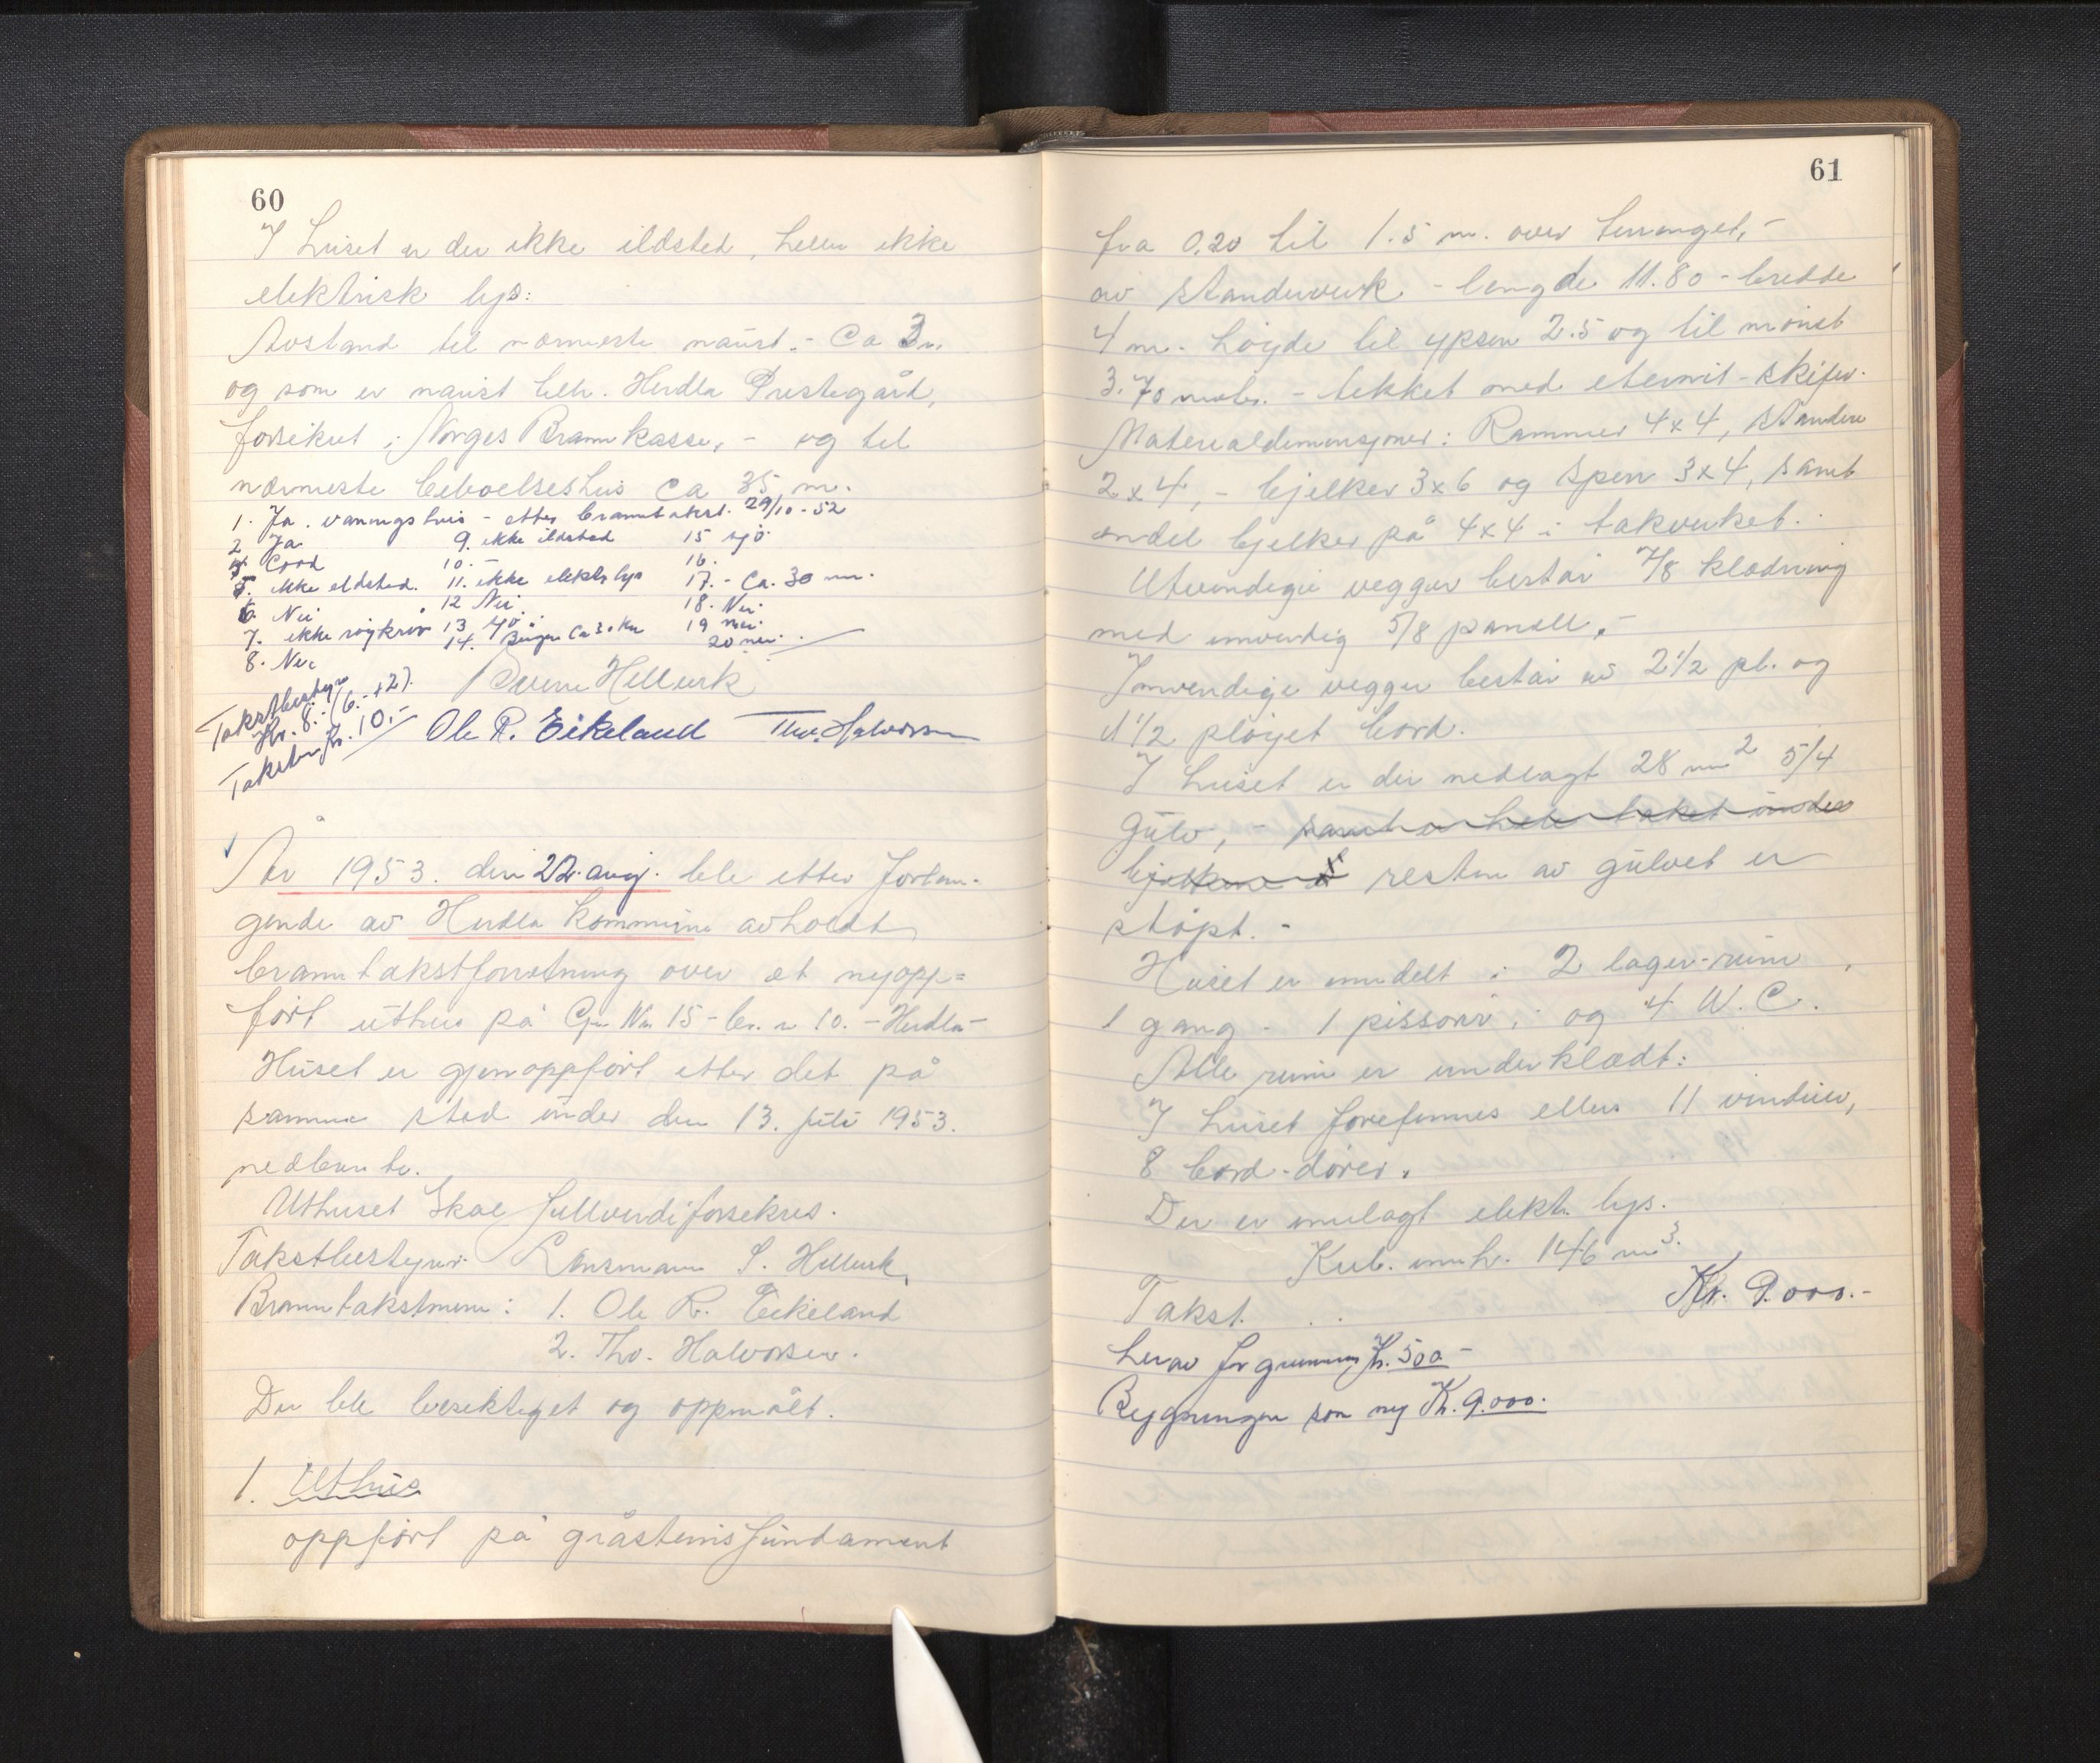 60
I huset er der ikke ildsted, heller ikke
elektrisk lys:
Avstand til nærmeste naust. - Ca 3 m.
og som er naust tilh. Herdla Prestegård,
forsikret i Norges Brannkasse, - og til
nærmeste beboelseshus ca 35 m.
1. Ja. vaningshus - etter branntakst. 29/10 - 52
2 Ja
4. Good
5. ikke ildsted.
6. Nei
7. ikke røykrør
8. Nei
9. ikke ildsted
10. -
11. ikke elektr lys
12 Nei
13 Ja
14. Bergen Ca 30 km
15 sjø
16.
17. - Ca. 30 m.
18. Nei
19 nei.
20 nei.
Takstbestyr
Kr. 8.- (6.- + 2).
Takstm Kr. 10.-
Sverre Hellerk
Ole R. Eikeland Thv. Halvorsen
År 1953. den 22. aug. ble etter forlan-
gende av Herdla kommune avholdt
branntakstforretning over et nyopp=
ført uthus på Gr. Nr 15 - br. nr 10. - Herdla -
Huset er gjenoppført etter det på
samme sted under den 13. juli 1953.
nedbrente.
Uthuset skal fullverdiforsikres.
Takstbestyrer: Lensmann S. Hellerk,
Branntakstmenn: 1. Ole R. Eikeland
2. Thv. Halvorsen.
Der ble besiktiget og oppmålt.
1. Uthus
oppført på gråsteinsfundament
61
fra 0.20 til 1.5 m. over terrenget, -
av standerverk - lengde 11.80 - bredde
4 m. høyde til ypsen 2.5 og til mønet
3.70 metr. - tekket med eternit - skifer.
Materialdimensjoner: Rammer 4x4, standere
2x4, - bjelker 3x6 og sperr 3x4, samt
endel bjelker på 4x4 i takverket.
Utvendige vegger består 7/8 kledning
med innvendig 5/8 panell. -
Innvendige vegger består av 2 1/2 pl. og
1 1/2 pløyet bord.
I huset er der nedlagt 28 m2 5/4
Gulv, - samt over hele taket under
bjelkene x resten av gulvet er
støpt. -
Huset er inndelt i 2 lager-rum
1 gang - 1 pissoar, og 4 W.C.
Alle rum er underklædt:
I huset forefinnes ellers 11 vinduer,
8 bord-dører.
Der er innlagt elektr. lys.
Kub. innh. 146 m3.
Takst. . . Kr. 9.000.-
herav for grunnmur Kr. 500 -
Bygningen som ny Kr. 9.000.